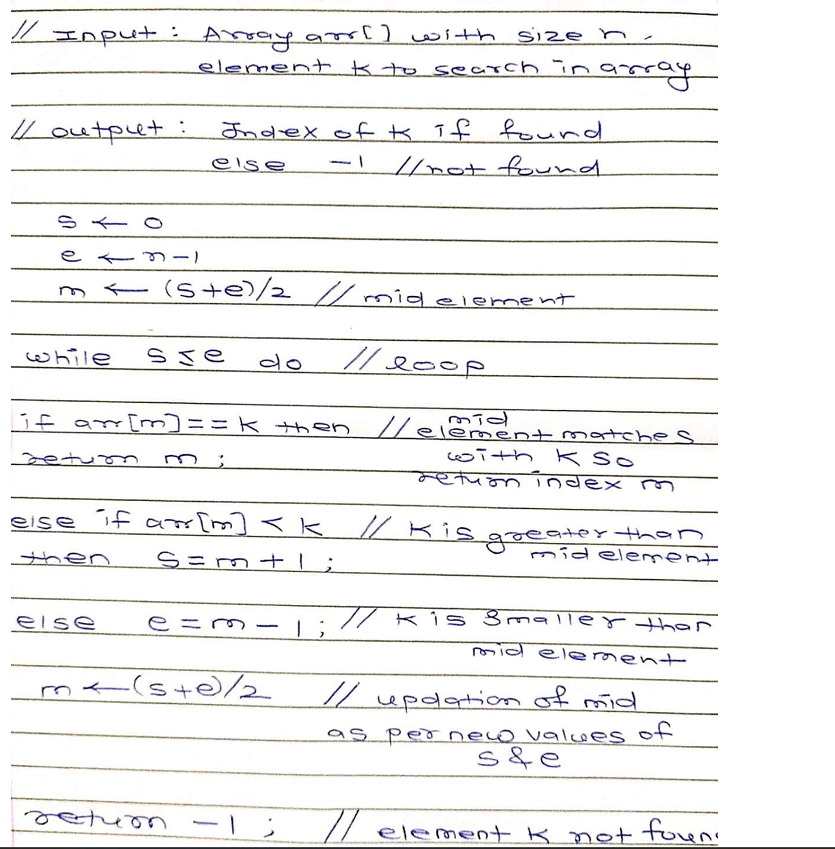 // Input : Array arr[] with size n.
element k to search in array
// output : Index of k if found
else -1 //not found
s ← 0
e ← n-1
m ← (s+e)/2 // mid element
while s≤e do // loop
if arr[m]==k then // mid element matches
return m ; with k so
return index m
else if arr[m] < k // k is greater than
then s=m+1 ; mid element
else e=m-1 ; // k is smaller than
mid element
m ←(s+e)/2 // updation of mid
as per new values of
s & e
return -1 ; // element k not foun